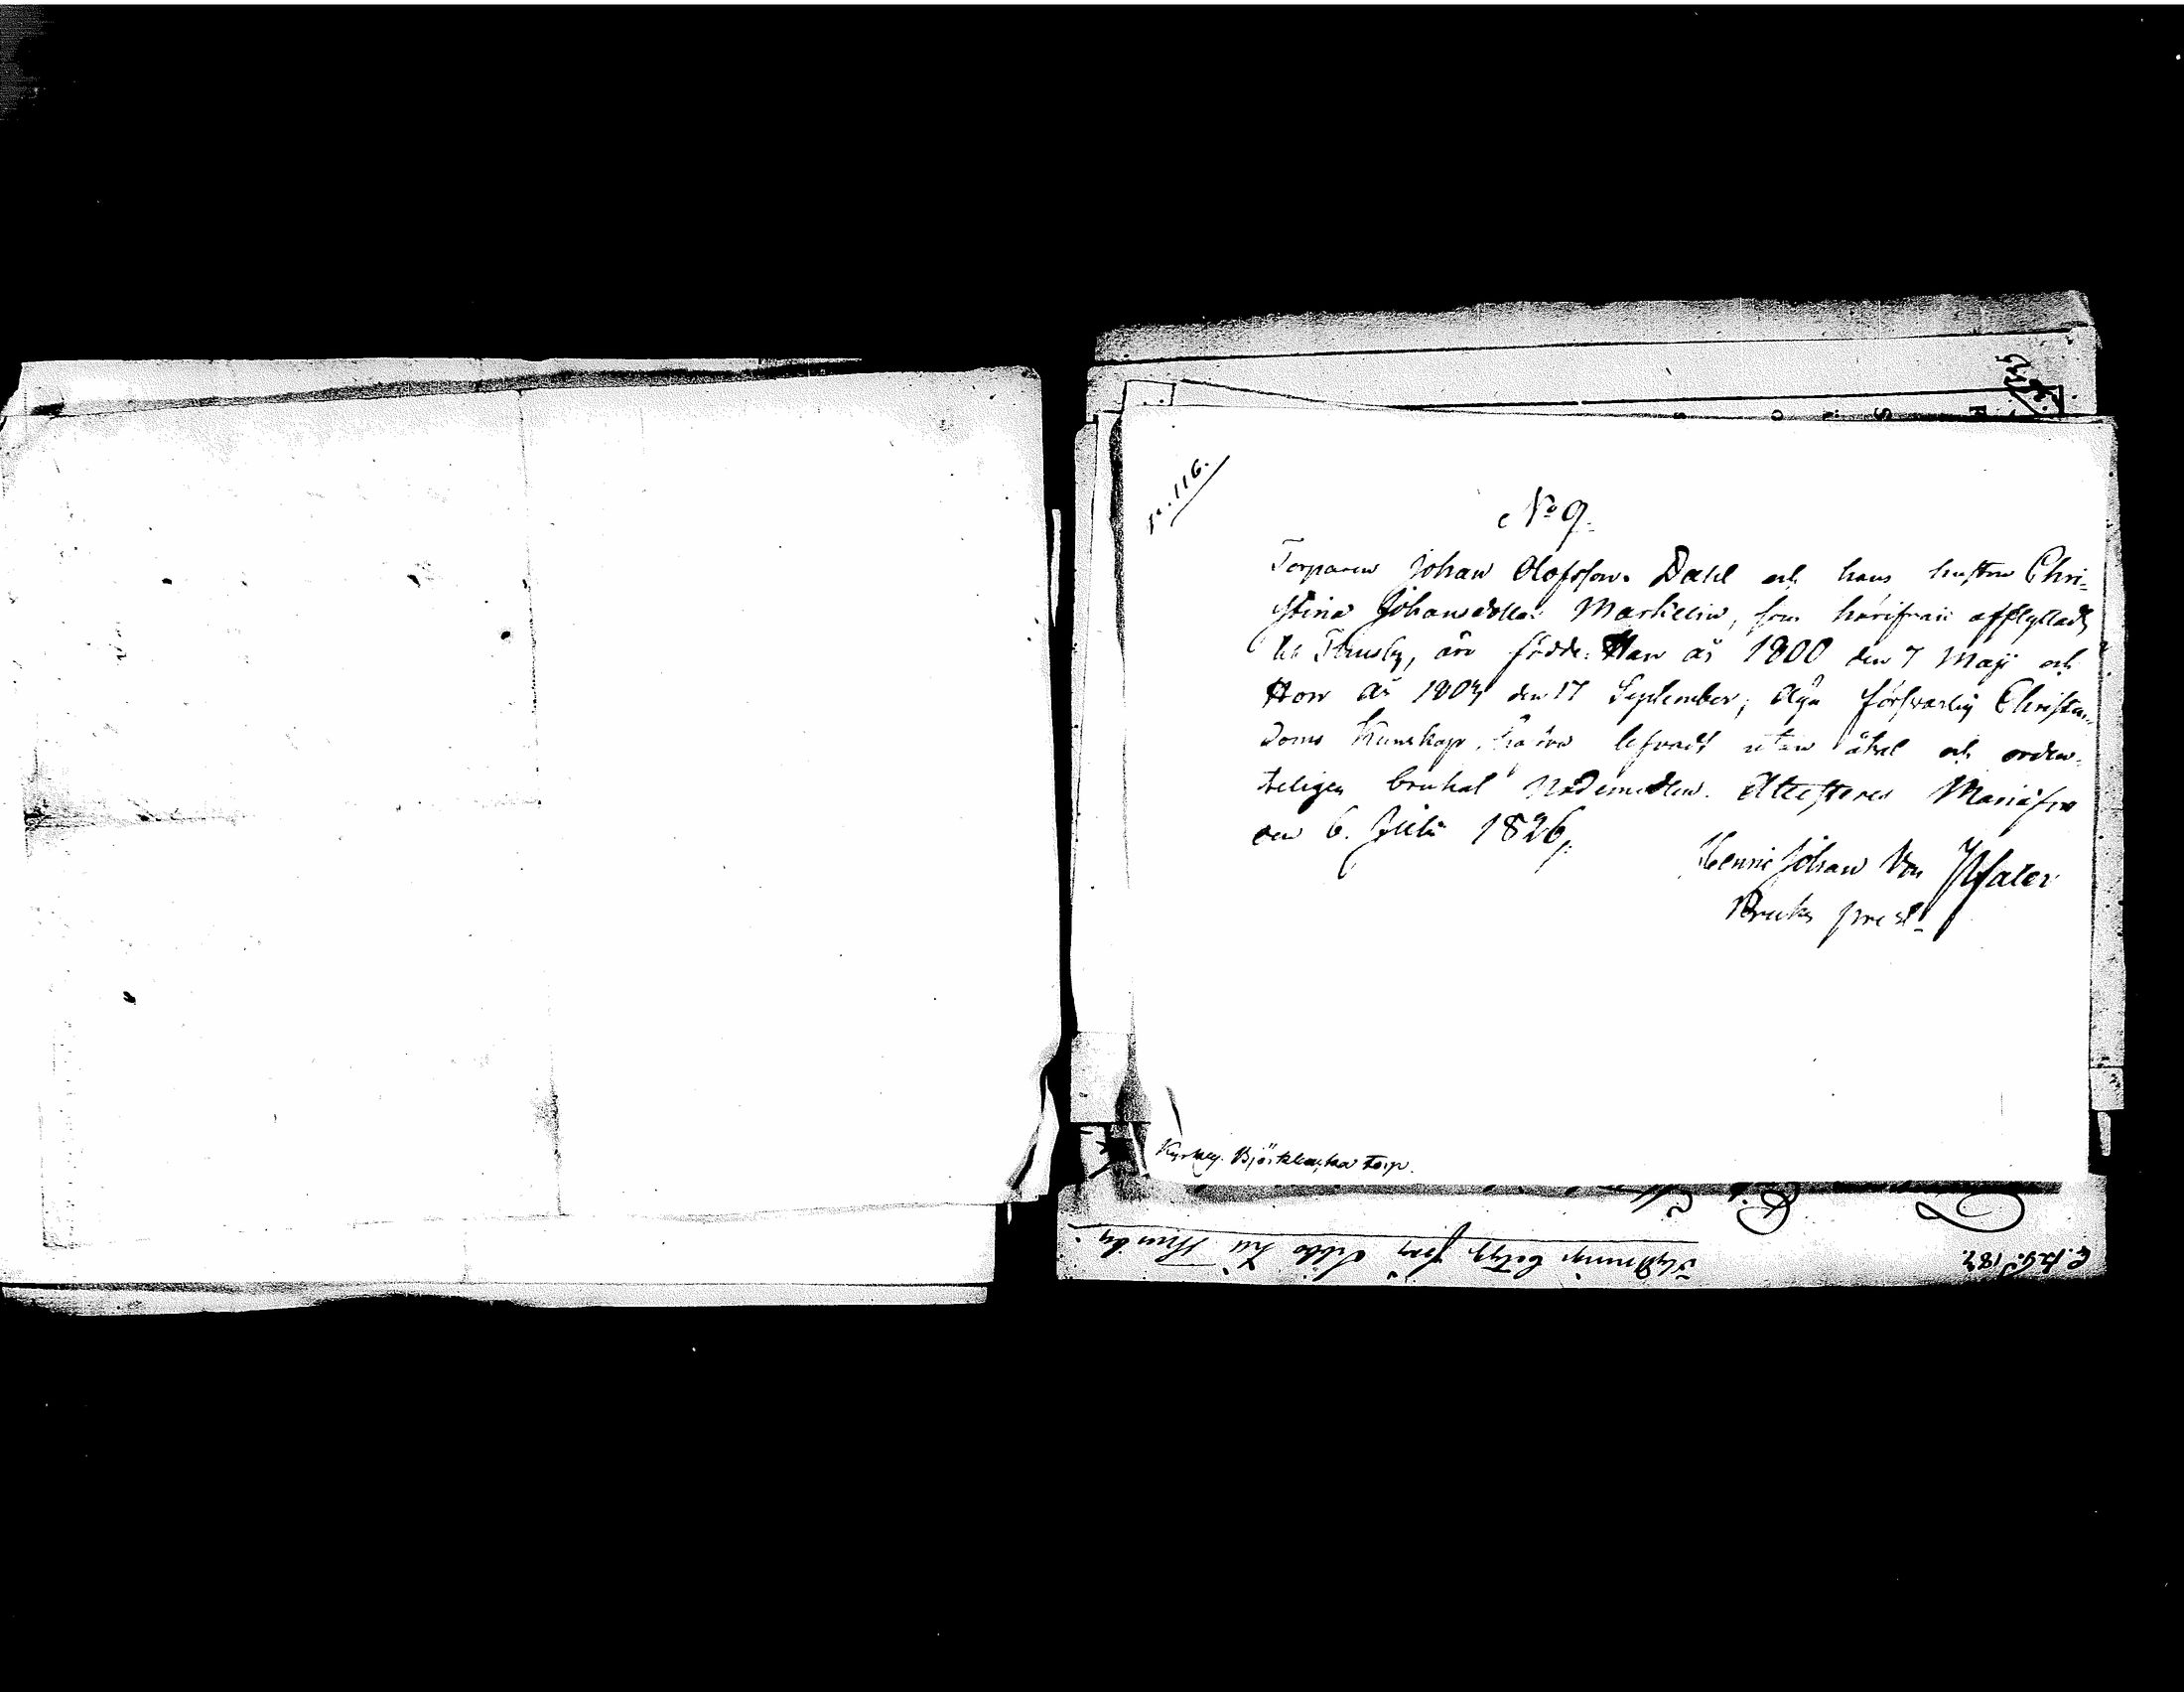 p. 116.
No 9.
Torparen Johan Olofsson Dahl och hans hustru Chri-
stina Johansdotter Martelin, som härifrån afflyttade
till Thusby, äro födde: Han år 1800 den 7 Maji och
Hon år 1804 den 17 September; äga försvarlig Christen-
doms Kunskap, hafva lefvadt utan åtal och orden-
teligen brukat Nådemedlen. Attesteras Mariæfors
den 6. Julii 1826.
Henric Johan Von Pfaler
Bruks prest
Björkbacka torp.
Flyttnings betyg från Sibbo till Thusby.